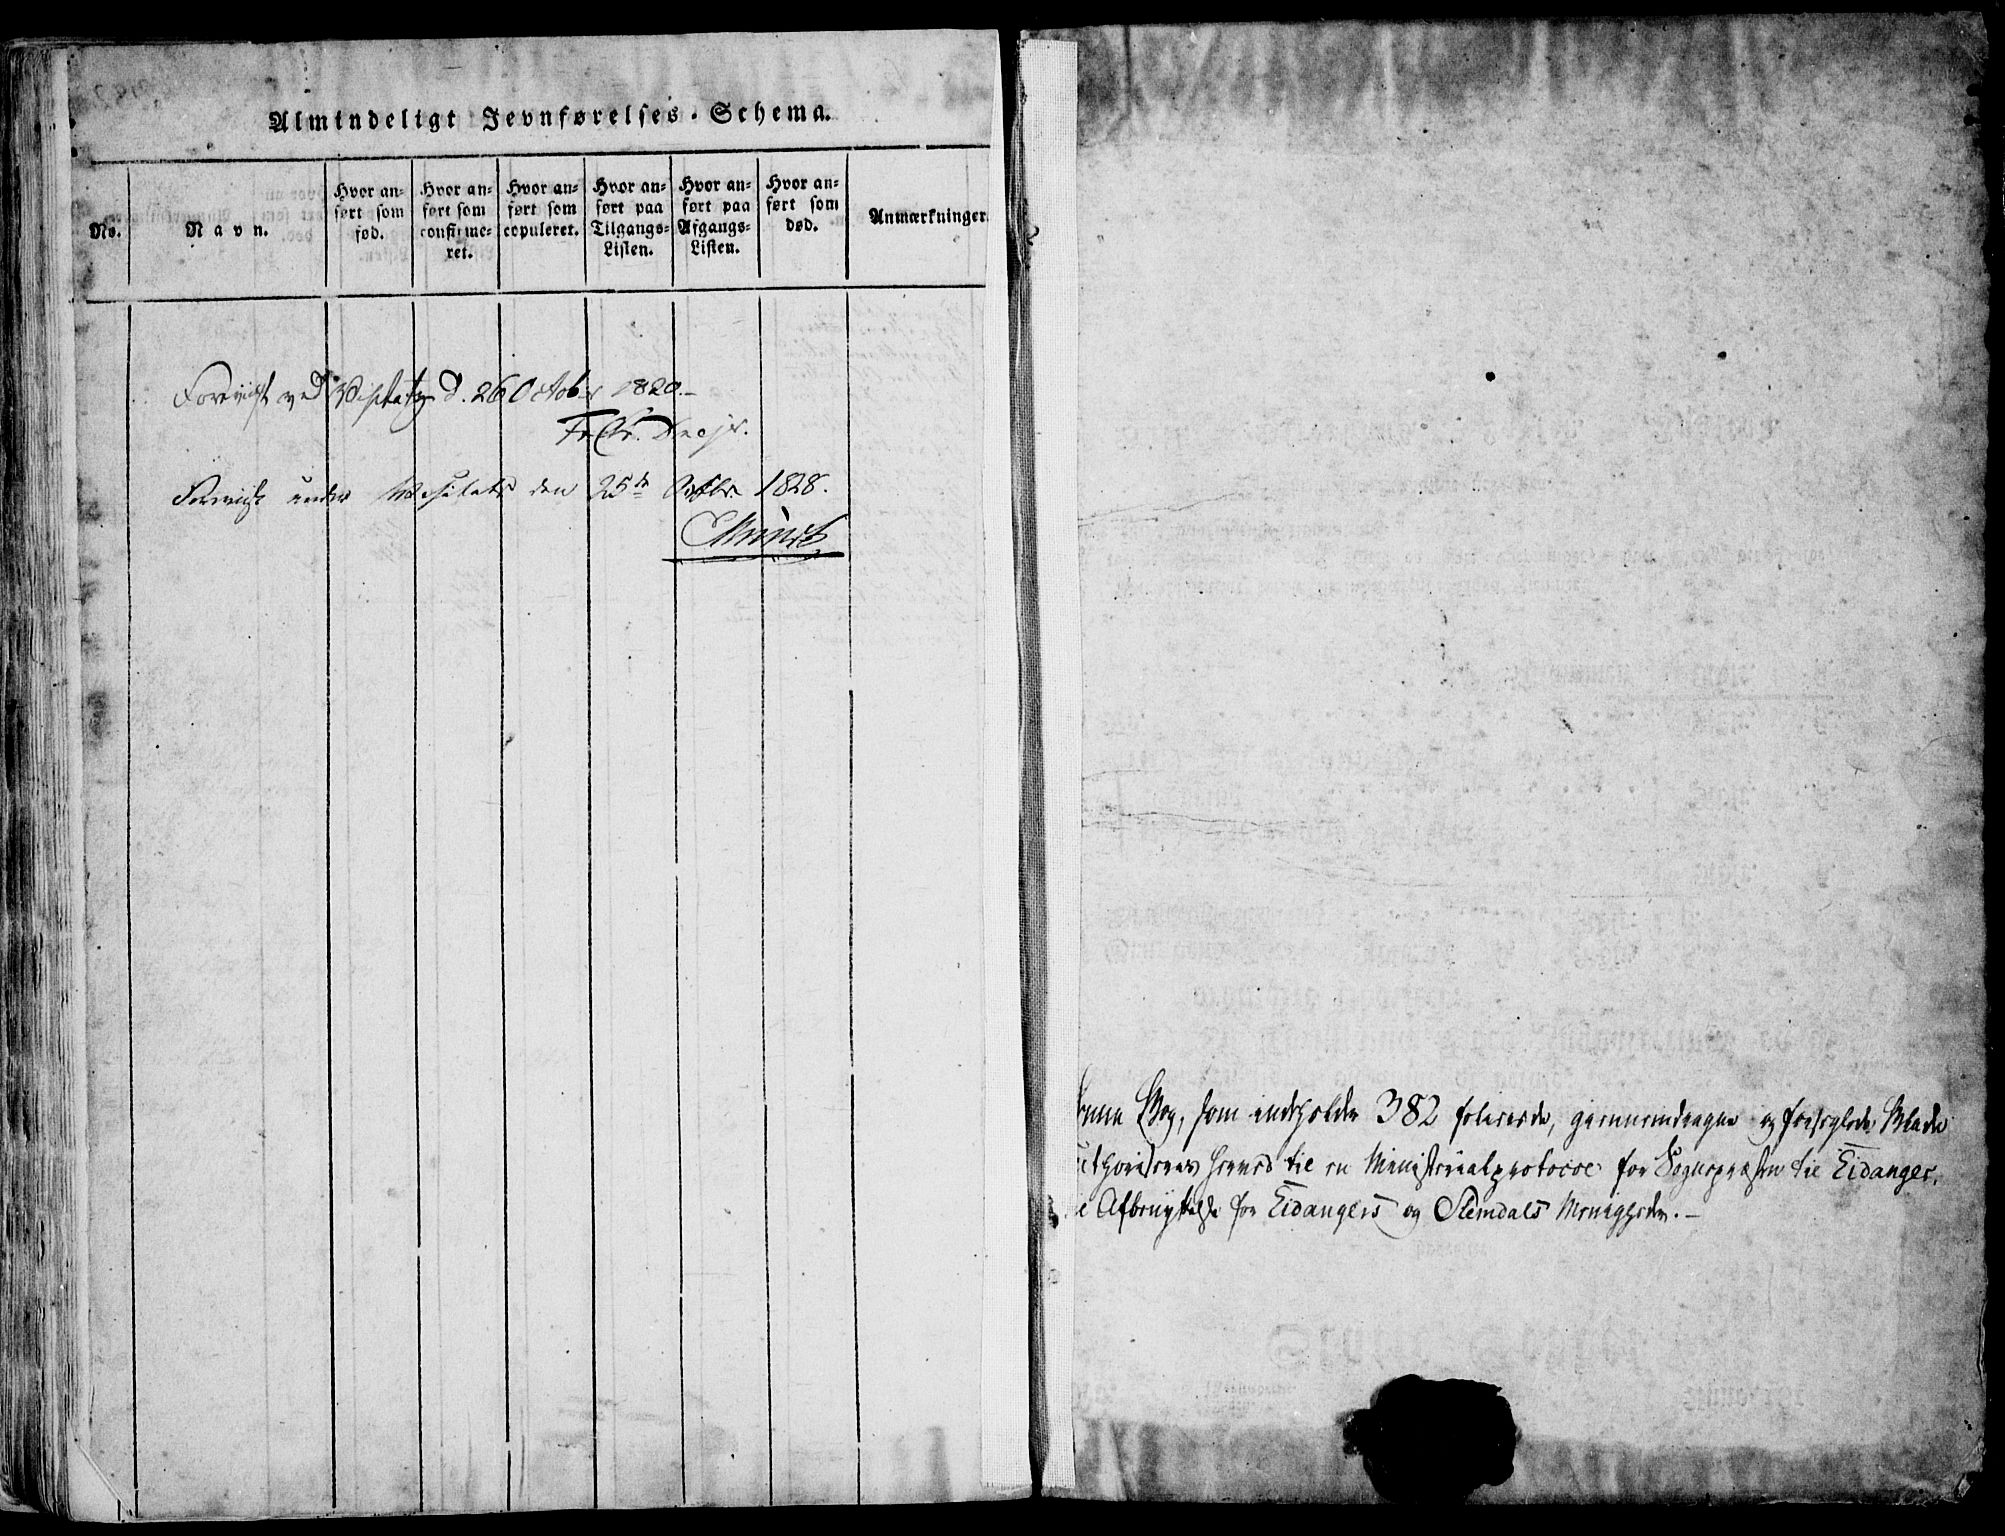 Almindeligt Jevnførelses-Schema.
No.
Navn.
Hvor an-
ført som
fød.
Hvor an-
ført som
confirme-
ret.
Hvor an-
ført som
copuleret.
Hvor an-
ført paa
Tilgangs-
Listen.
Hvor an-
ført paa
Afgangs-
Listen.
Hvor an-
ført som
død.
Anmærkninger.
Foreviist ved Visitatz d. 26 October 1820.-
Foreviist under Visitats den 25de Octbr. 1828.
Munch
Bog, som indeholder 382 folierede, giennemdragne og forseglede Blade
hereved til en Ministerialprotocol for Sognepræsten til Eidanger,
Afbenyttelse for Eidangers og Slemdals Menigheder.-